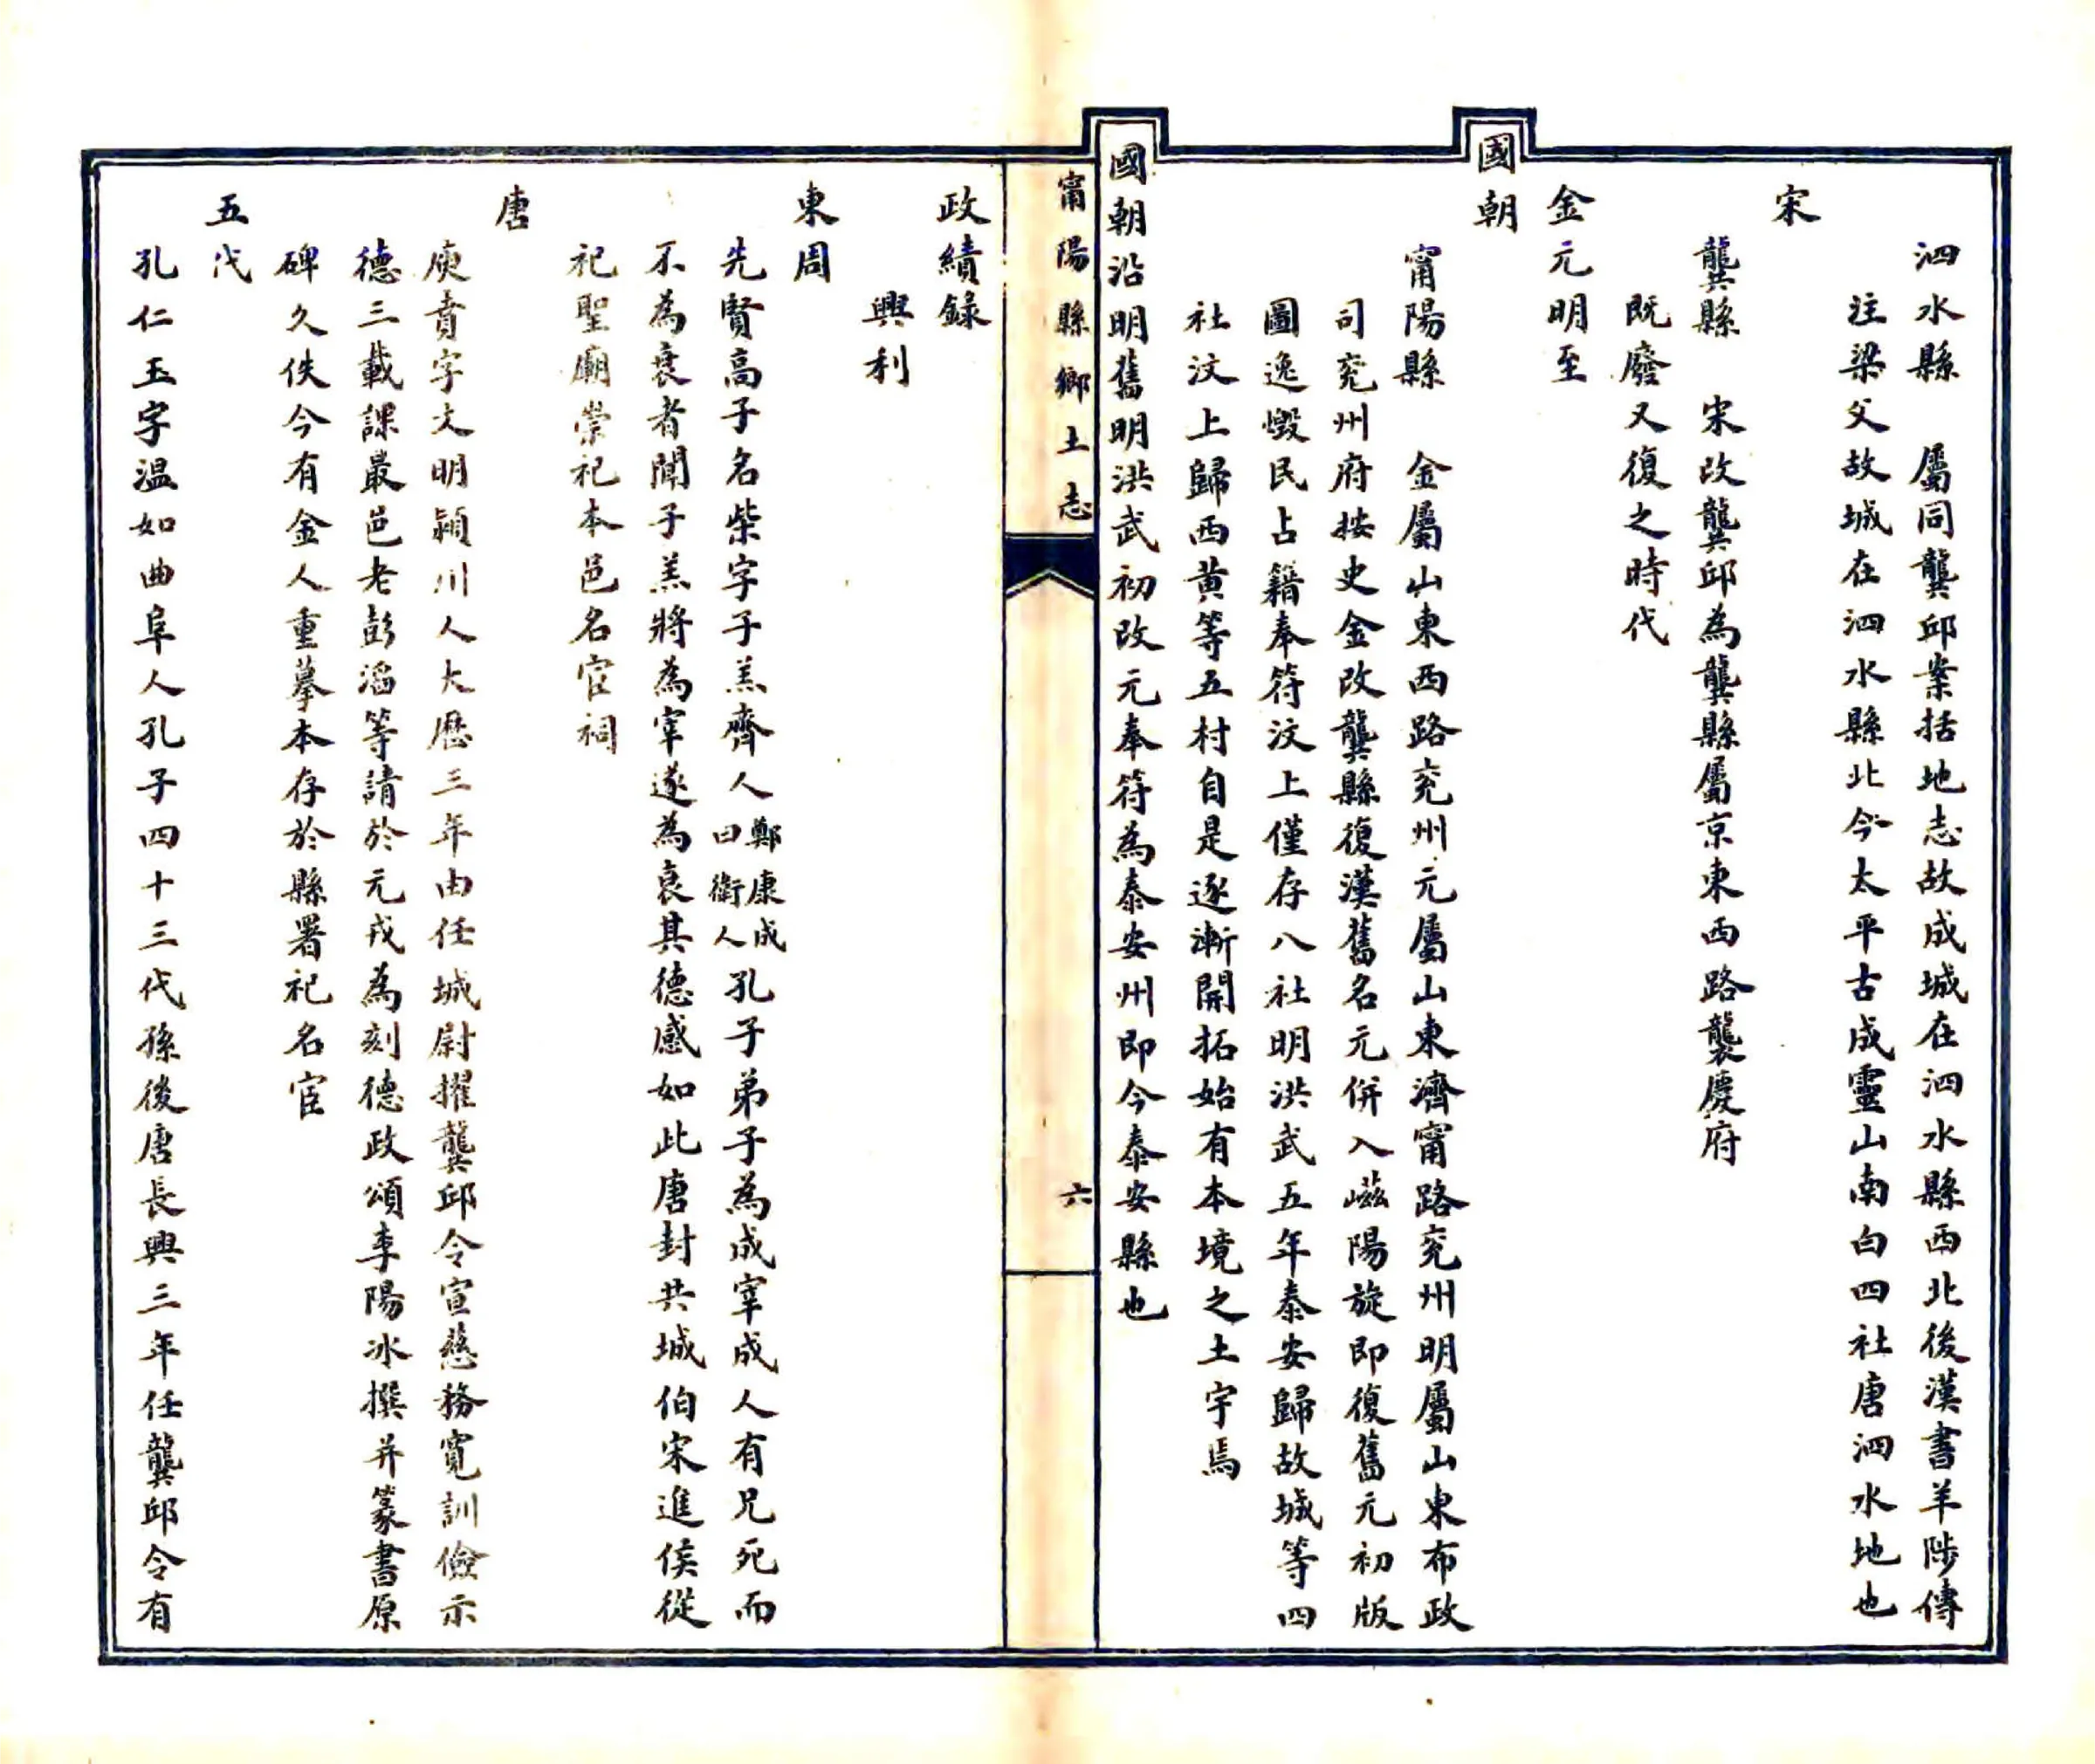 泗水縣　屬同龔邱案括地志故成城在泗水縣西北後漢書羊陟傳
注梁父故城在泗水縣北今太平古成靈山南白四社唐泗水地也
宋
龔縣　宋改龔邱為龔縣屬京東西路襲慶府
既廢又復之時代
金元明至
國朝
甯陽縣　金屬山東西路兖州元屬山東濟甯路兖州明屬山東布政
司兖州府按史金改龔縣復漢舊名元併入嵫陽旋即復舊元初版
圖逸燬民占籍奉符汶上僅存八社明洪武五年泰安歸故城等四
社汶上歸西黄等五村自是逐漸開拓始有本境之土宇焉
國朝沿明舊明洪武初改元奉符為泰安州即今泰安縣也
甯陽縣鄉土志
六
政績錄
興利
東周
先賢高子名柴字子羔齊人鄭康成曰衛人孔子弟子為成宰成人有兄死而
不為衰者聞子羔將為宰遂為衰其德感如此唐封共城伯宋進侯從
祀聖廟崇祀本邑名宦祠
唐
庾賁字文明潁川人大歷三年由任城尉擢龔邱令宣慈務寬訓儉示
德三載課最邑老彭滔等請於元戎為刻德政頌李陽冰撰并篆書原
碑久佚今有金人重摹本存於縣署祀名宦
五代
孔仁玉字温如曲阜人孔子四十三代孫後唐長興三年任龔邱令有